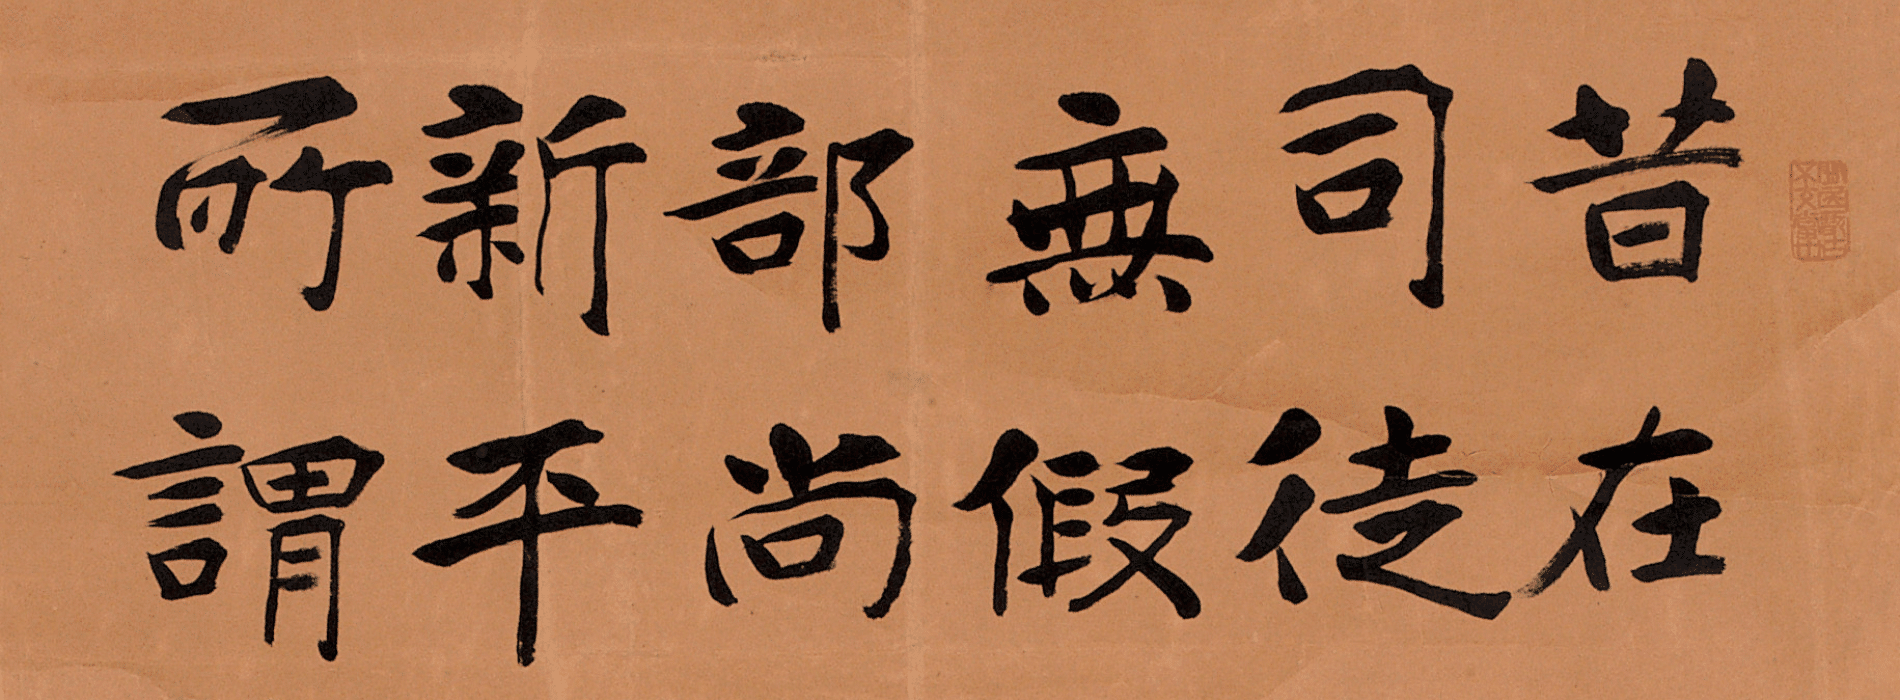 昔在
司徒
無假
部尚
新平
所謂